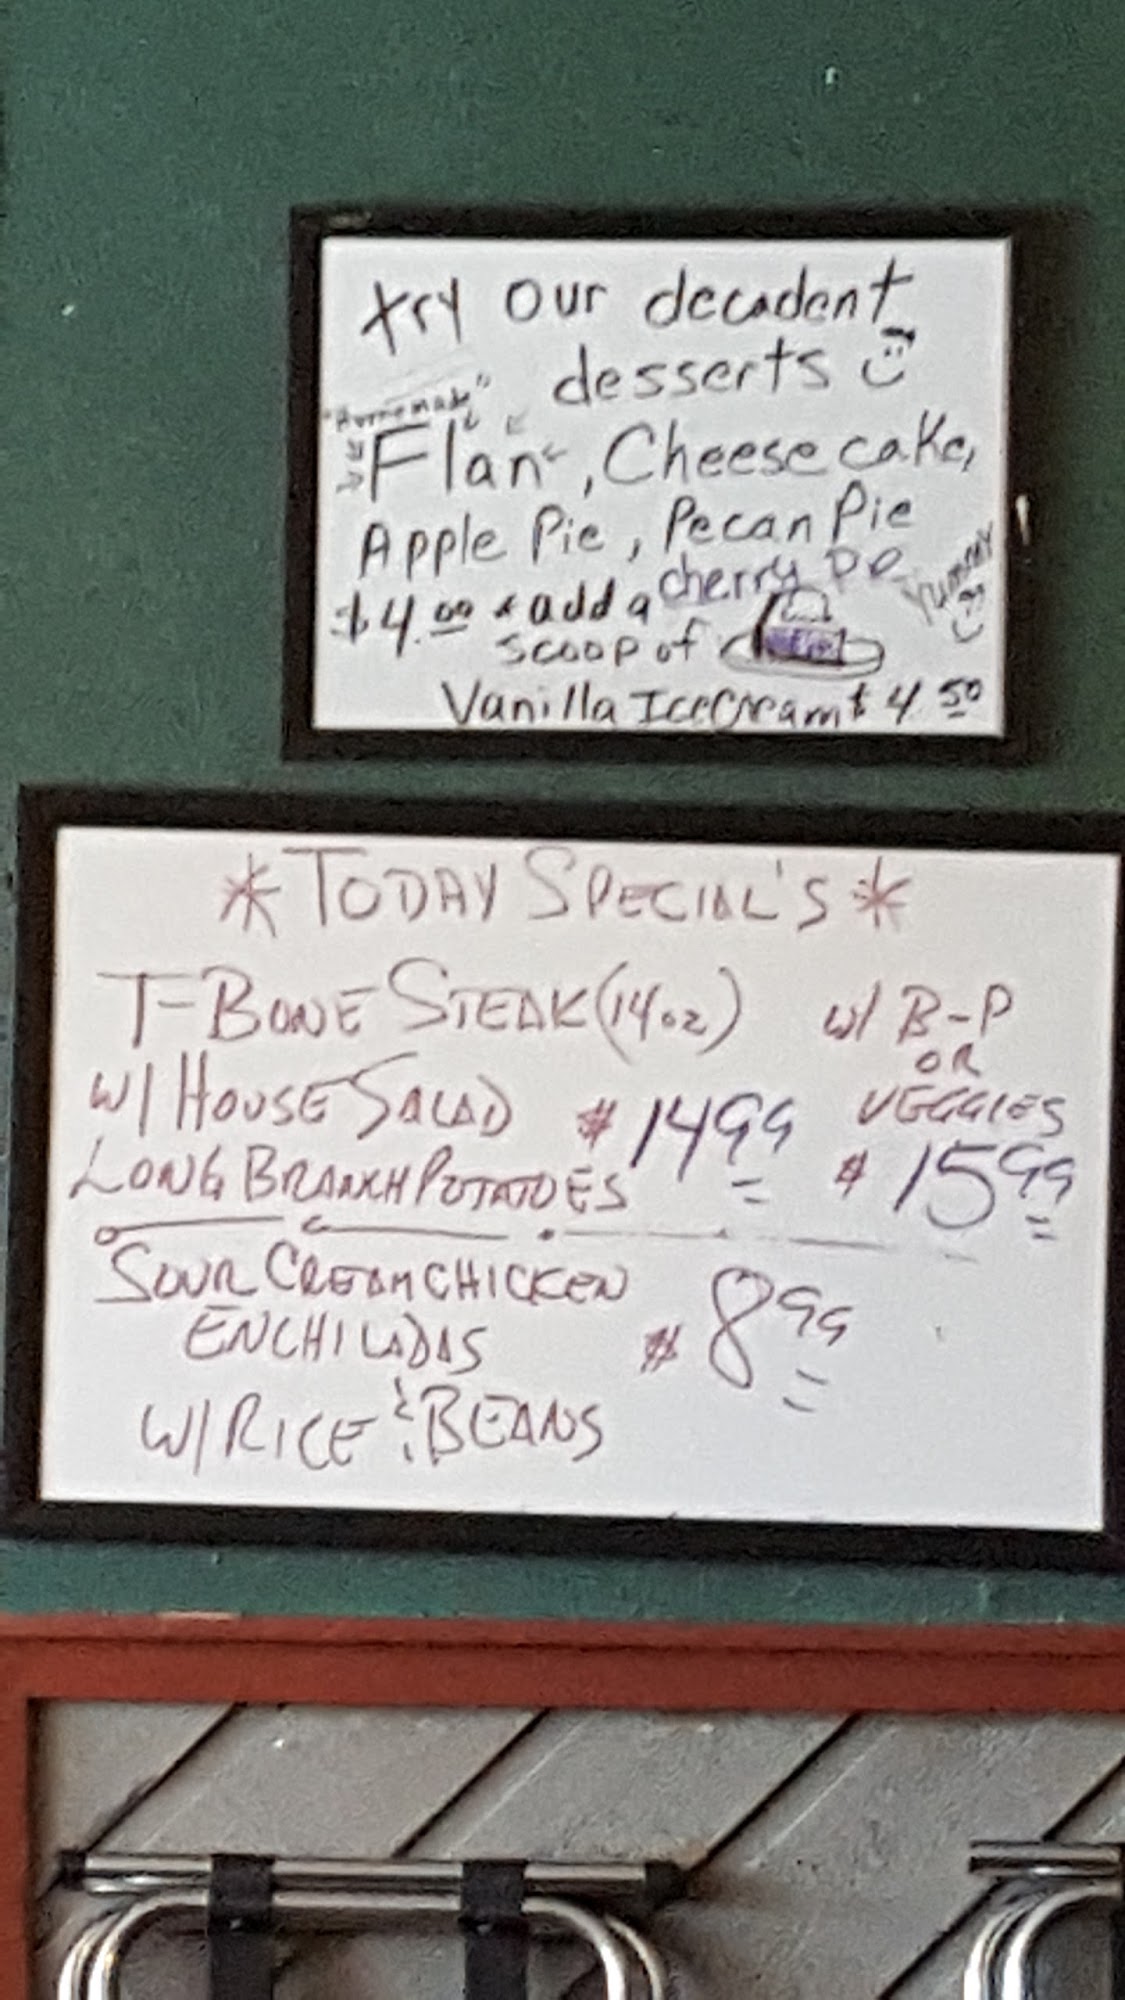 try our decadent
desserts
"Homemade"
Flan, Cheesecake,
Apple Pie, Pecan Pie
cherry Pie
Yummy
$4.00 * add a
scoop of
Vanilla Ice Cream $4.50
* TODAY SPECIAL'S *
T-BONE STEAK (14oz)
W/ HOUSE SALAD $14 99
LONG BRANCH POTATOES
w/ B-P
OR
VEGGIES
$15 99
SOUR CREAM CHICKEN
ENCHILADAS $8 99
W/ RICE & BEANS